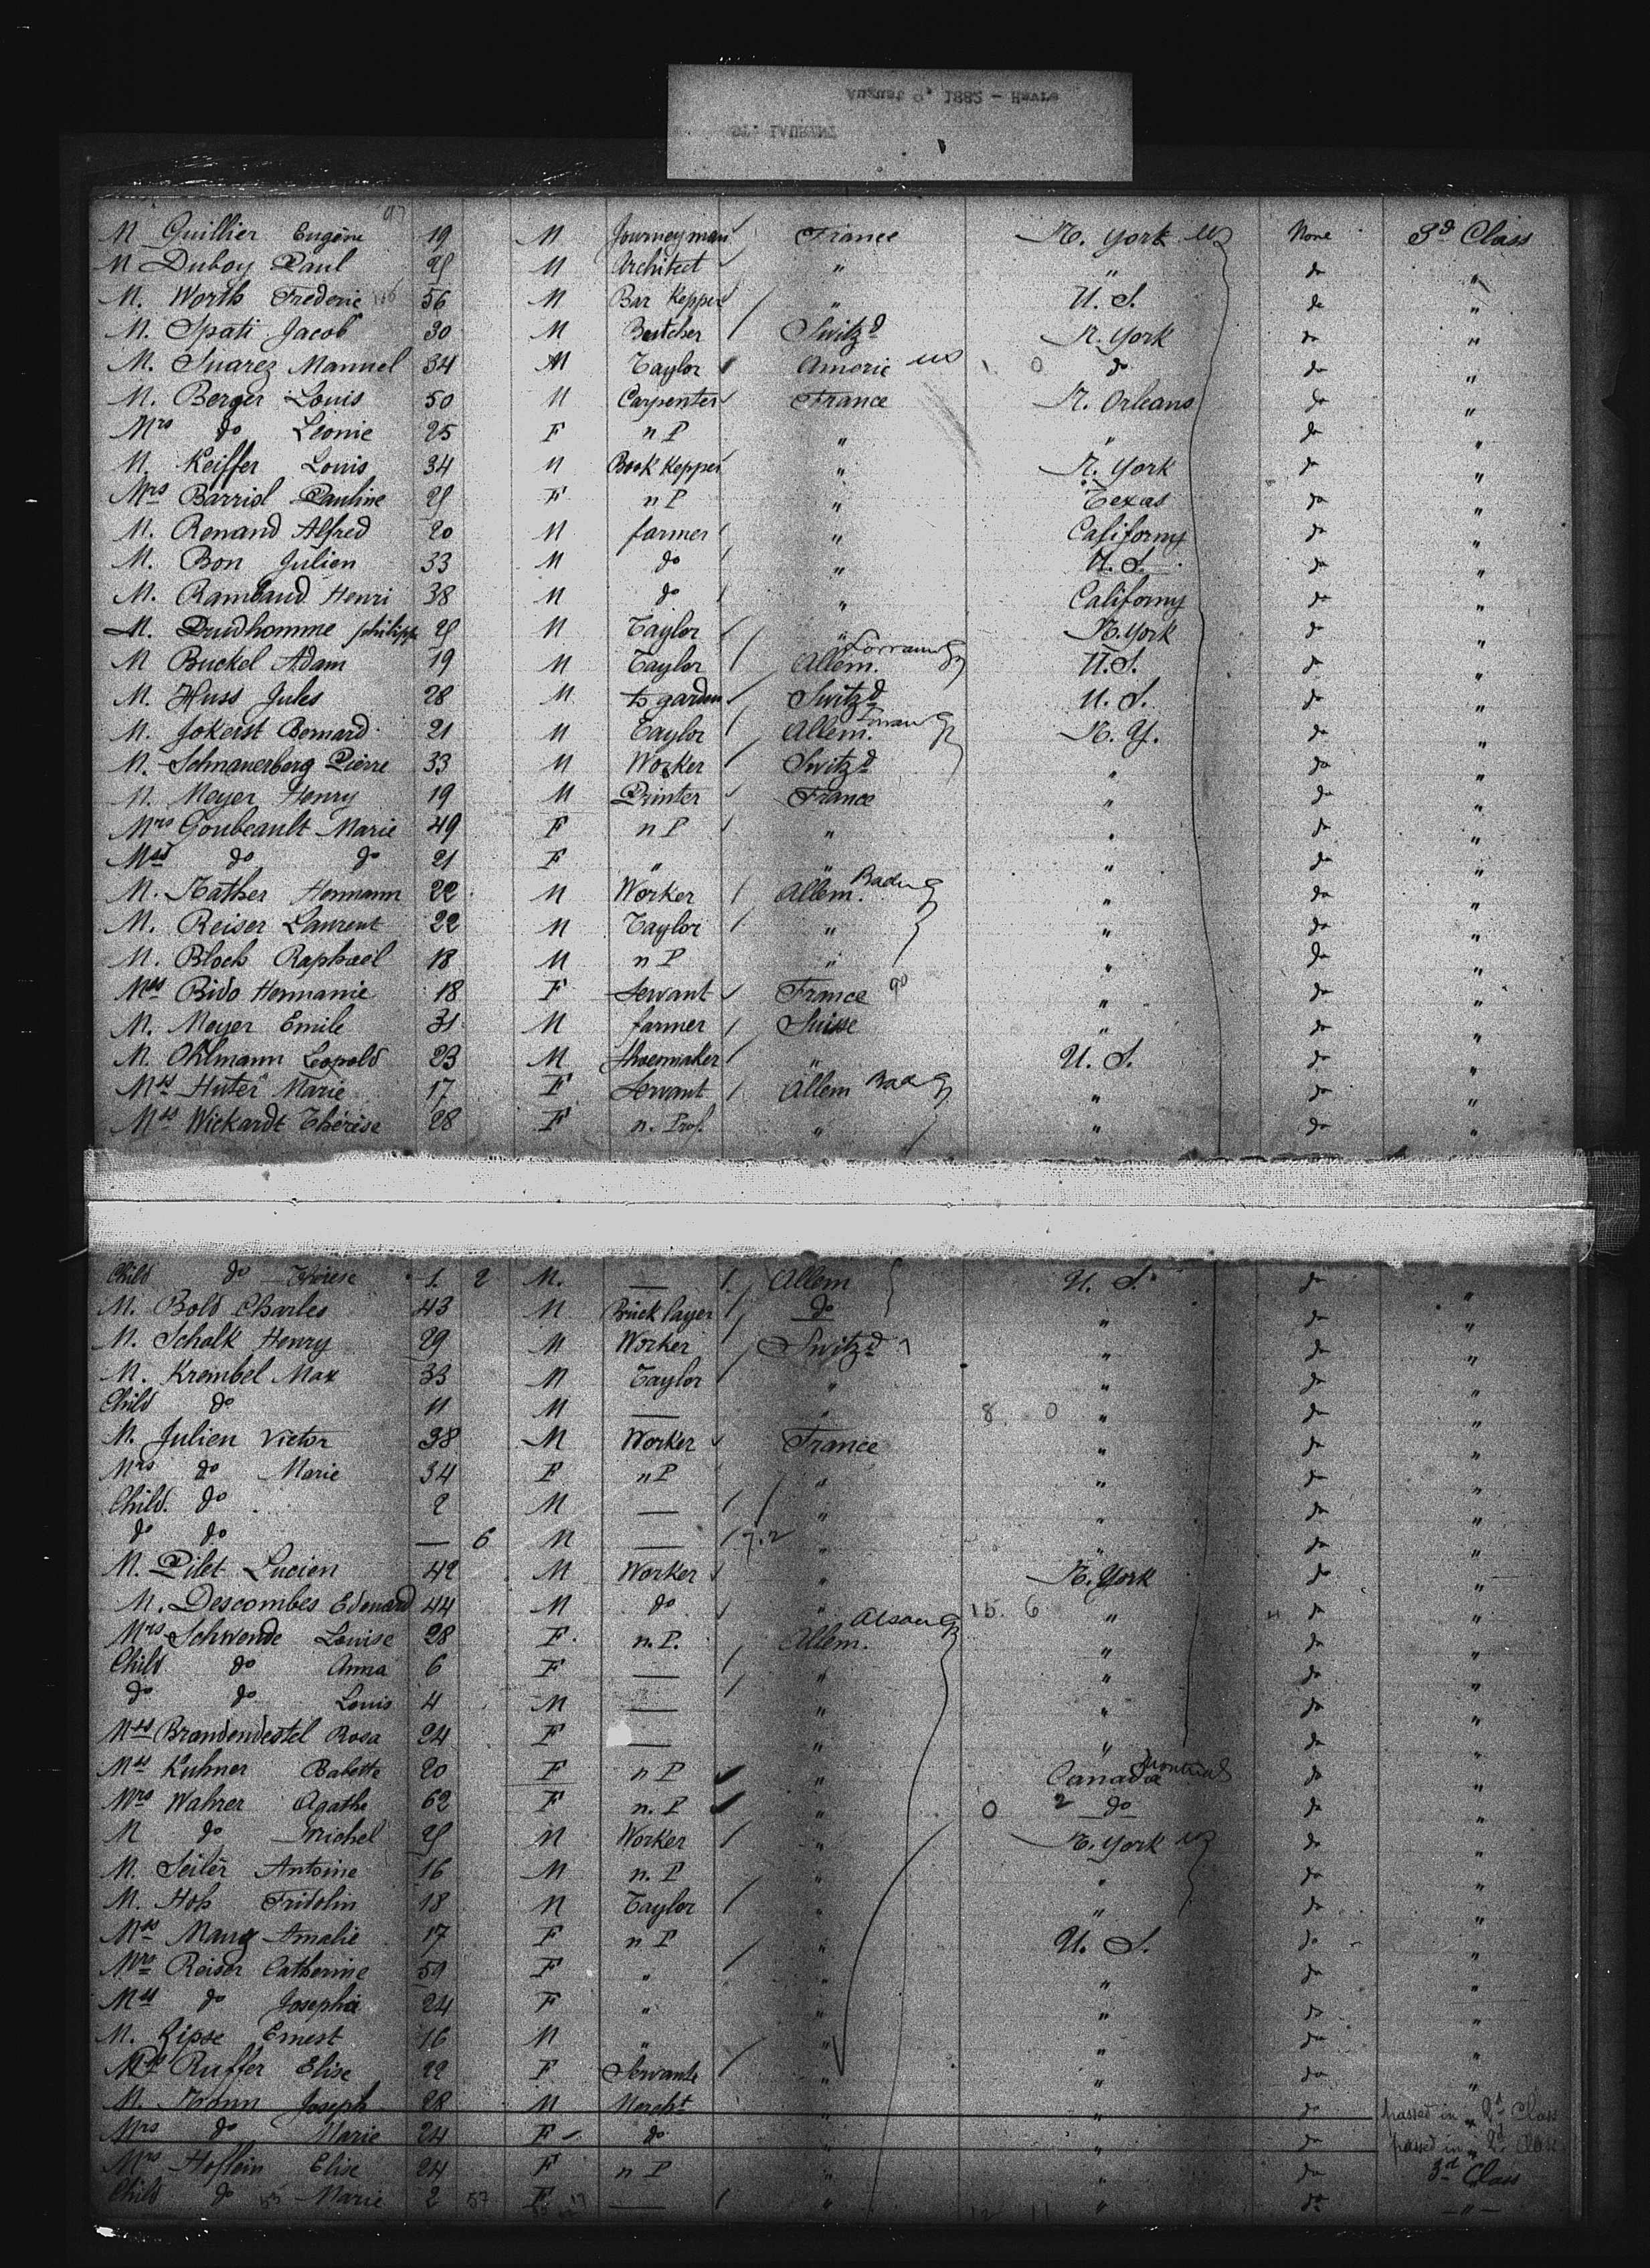 August 9, 1882 - Havre
ST. LAURENT
M Quillier Eugène 19 M Journeyman France N. York None 3d Class
M Duboy Paul 25 M Architect " " do "
M. Worth Frederic 56 M Bar Kepper " U. S. do "
M. Spati Jacob 30 M Butcher Switzd N. York do "
M. Suarez Manuel 34 M Taylor Americ us do do "
M. Berger Louis 50 M Carpenter France N. Orleans do "
Mrs do Léonie 25 F n P " " do "
M. Keiffer Louis 34 M Book Kepper " N. York do "
Mrs Barriol Pauline 25 F n P " Texas do "
M. Renand Alfred 20 M farmer " Californy do "
M. Bon Julien 33 M do " U. S. do "
M. Rambaud Henri 38 M do " Californy do "
M. Prudhomme philippe 25 M Taylor " N. York do "
M Buckel Adam 19 M Taylor Allem. U. S. do "
M. Huss Jules 28 M to garden Switzd U. S. do "
M. Jokerst Bernard 21 M Taylor Allem. N. Y. do "
M. Schmanerberg Pierre 33 M Worker Switzd " do "
M. Meyer Henry 19 M Printer France " do "
Mrs Goubeault Marie 49 F n P " " do "
Mss do do 21 F " " " do "
M. Nather Hermann 22 M Worker Allem. Baden " do "
M. Reiser Laurent 22 M Taylor " " do "
M. Bloch Raphaël 18 M n P " " do "
Mss Bido Hermanie 18 F Servant France " do "
M. Meyer Emile 31 M farmer Suisse " do "
M. Ohlmann Leopold 23 M Shoemaker " U. S. do "
Mss Huter Marie 17 F Servant Allem Bad " do "
Mss Wickardt Thérèse 28 F n. Prof. " " do "
Child do Thérese 1 2 M. — Allem U. S. do "
M. Bold Charles 43 M Brick layer do " do "
M. Schalk Henry 29 M Worker Switzd " do "
M. Krembel Max 33 M Taylor " " do "
Child do 11 M — " 8 0 " do "
M. Julien Victor 38 M Worker France " do "
Mrs do Marie 34 F n P " " do "
Child. do 2 M — " " do "
do do — 6 M — 7.2 " " do "
M. Pilet Lucien 42 M Worker " N. York do "
M. Descombes Edouard 44 M do " 15. 6 " do "
Mrs Schwende Louise 28 F. n. P. Allem. " do "
Child do Anna 6 F — " " do "
do do Louis 4 M — " " do "
Mss Brandendestel Rosa 24 F — " " do "
Mss Kuhner Babette 20 F n P " Canada Montreal do "
Mrs Wahrer Agathe 62 F n. P " 0 2 do do "
M do Michel 25 M Worker " N. York do "
M. Seiler Antoine 16 M n. P " " do "
M. Hoh Fridolin 18 M Taylor " " do "
Mss Maug Amalie 17 F n P " U. S. do "
Mrs Reiser Catherine 59 F " " " do "
Mss do Josepha 24 F " " " do "
M. Zipse Ernest 16 M " " " do "
Mss Ruffer Elise 22 F Servante " " do "
M. Joseph 28 M Mercht " " do passed in 2d Class
Mrs do Marie 24 F do " " do passed in 2d Class
Mrs Hoflein Elise 24 F n P " " do 3d Class
Child do Marie 2 57 F — " 12 11 " do "